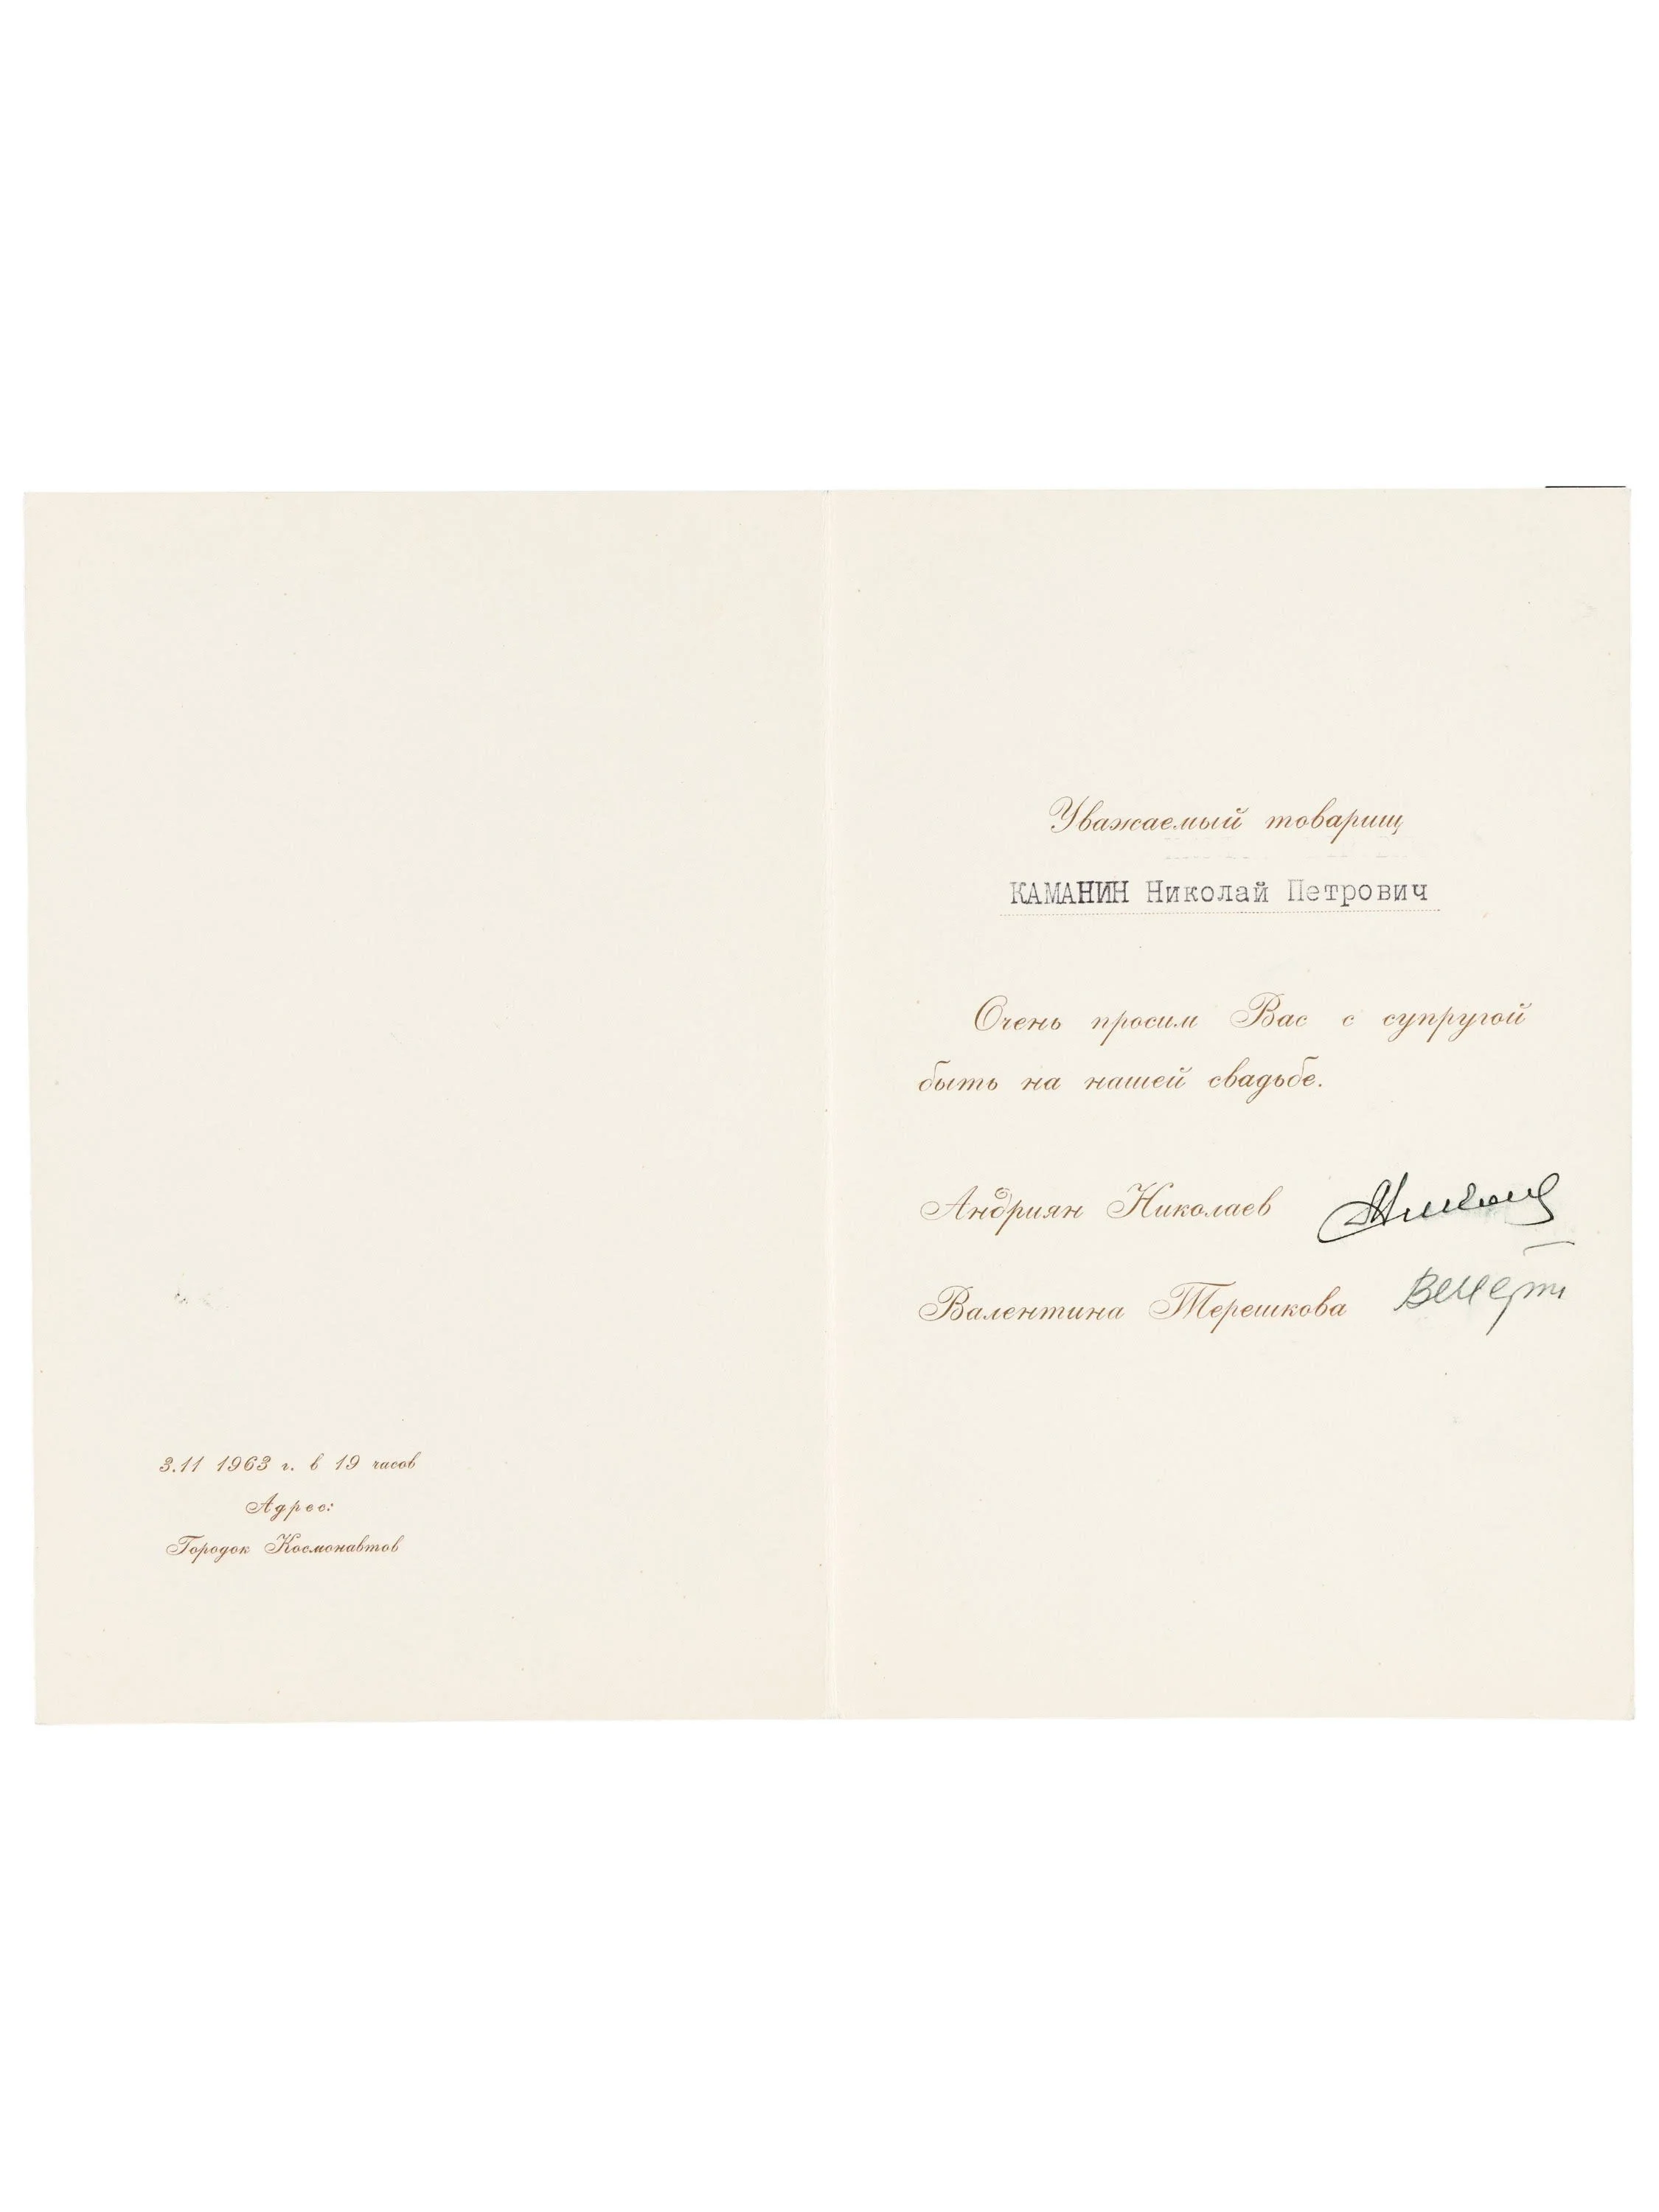 3.11 1963 г. в 19 часов
Адрес:
Городок Космонавтов
Уважаемый товарищ
КАМАНИН Николай Петрович
Очень просим Вас с супругой
быть на нашей свадьбе.
Андриян Николаев
Валентина Терешкова